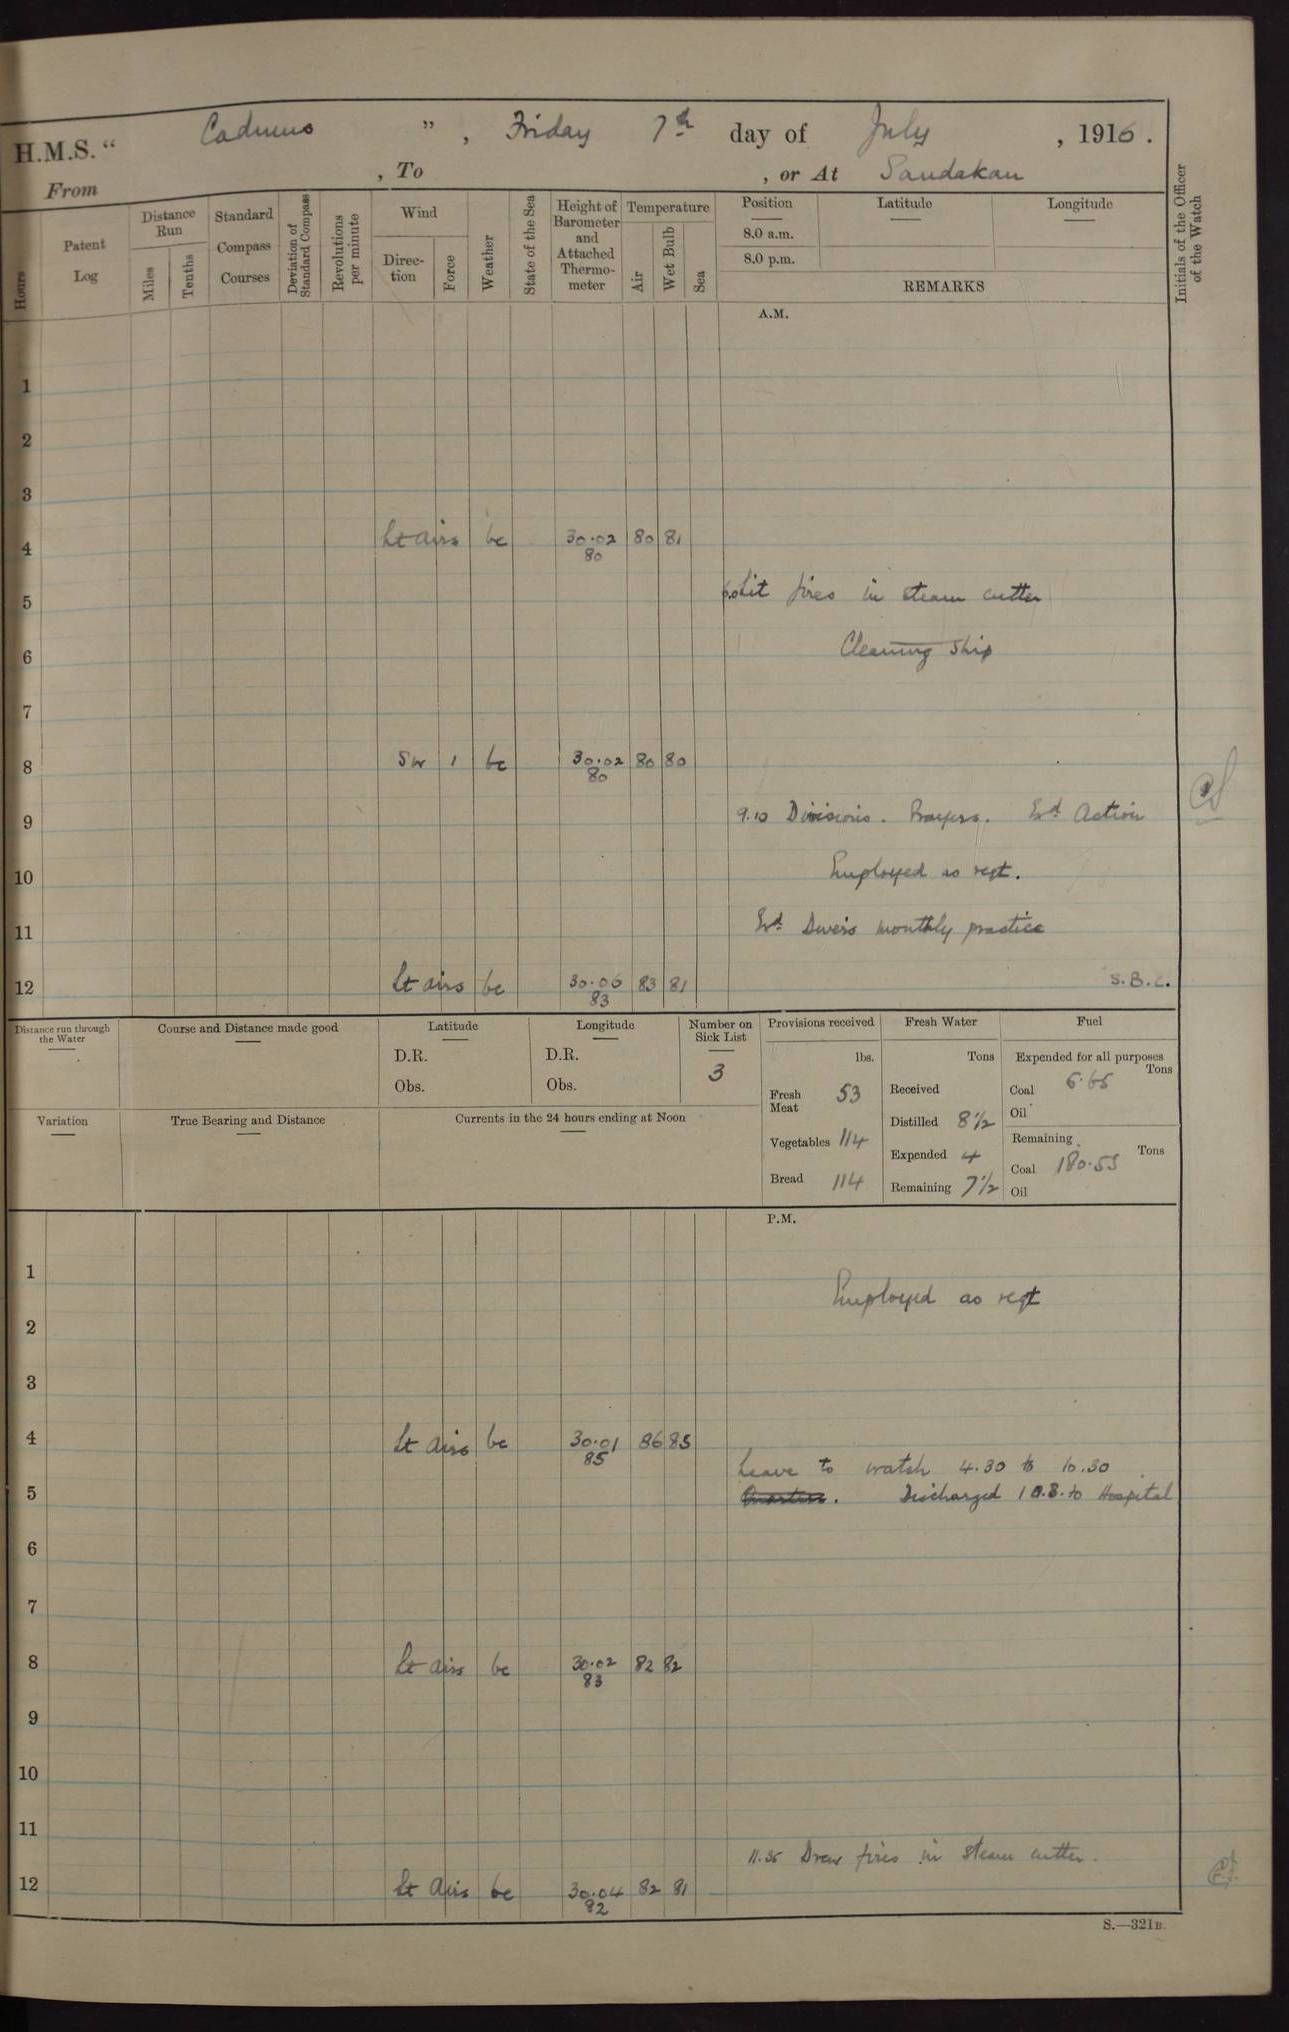 H.M.S. "Cadmus", Friday 7th day of July, 1916.
From , To , or At Sandakan
Hours
Patent Log
Distance Run
Miles
Tenths
Standard Compass Courses
Deviation of Standard Compass
Revolutions per minute
Wind
Direction
Force
Weather
State of the Sea
Height of Barometer and Attached Thermometer
Temperature
Air
Wet Bulb
Sea
Position
8.0 a.m.
8.0 p.m.
Latitude
Longitude
REMARKS
Initials of the Officer of the Watch
A.M.
1
2
3
4 Lt airs bc 30.02 80 81
80
5 Lit fires in steam cutter
6 Cleaning ship
7
8 SW 1 bc 30.02 80 80
80
9 9.10 Divisions. Prayers. Exd Action
10 Employed as reqt.
11 Exd Divers monthly practice
12 Lt airs bc 30.06 83 81 S.B.C.
83
Distance run through the Water
Course and Distance made good
Latitude
D.R.
Obs.
Longitude
D.R.
Obs.
Number on Sick List
3
Provisions received
lbs.
Fresh Meat 53
Vegetables 114
Bread 114
Fresh Water
Tons
Received
Distilled 8 1/2
Expended 4
Remaining 7 1/2
Fuel
Expended for all purposes
Tons
Coal 6.65
Oil
Remaining
Tons
Coal 180.55
Oil
Variation
True Bearing and Distance
Currents in the 24 hours ending at Noon
P.M.
1
Employed as reqt
2
3
4 Lt airs bc 30.01 86 85
85
Leave to watch 4.30 to 10.30
5 Quarters. Discharged 1 O.S. to Hospital
6
7
8 Lt airs bc 30.02 82 82
83
9
10
11
11.35 Drew fires in steam cutter.
12 Lt airs bc 30.04 82 81
82
S.—321B.